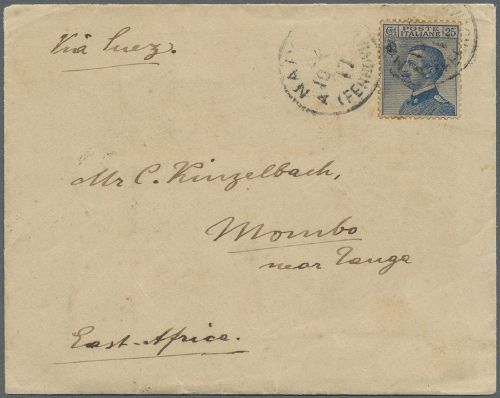 Via Suez.
POSTE
ITALIANE
25
(FERROVIA)
Mr C. Kinzelbach,
Mombo
near Tanga
East-Africa.